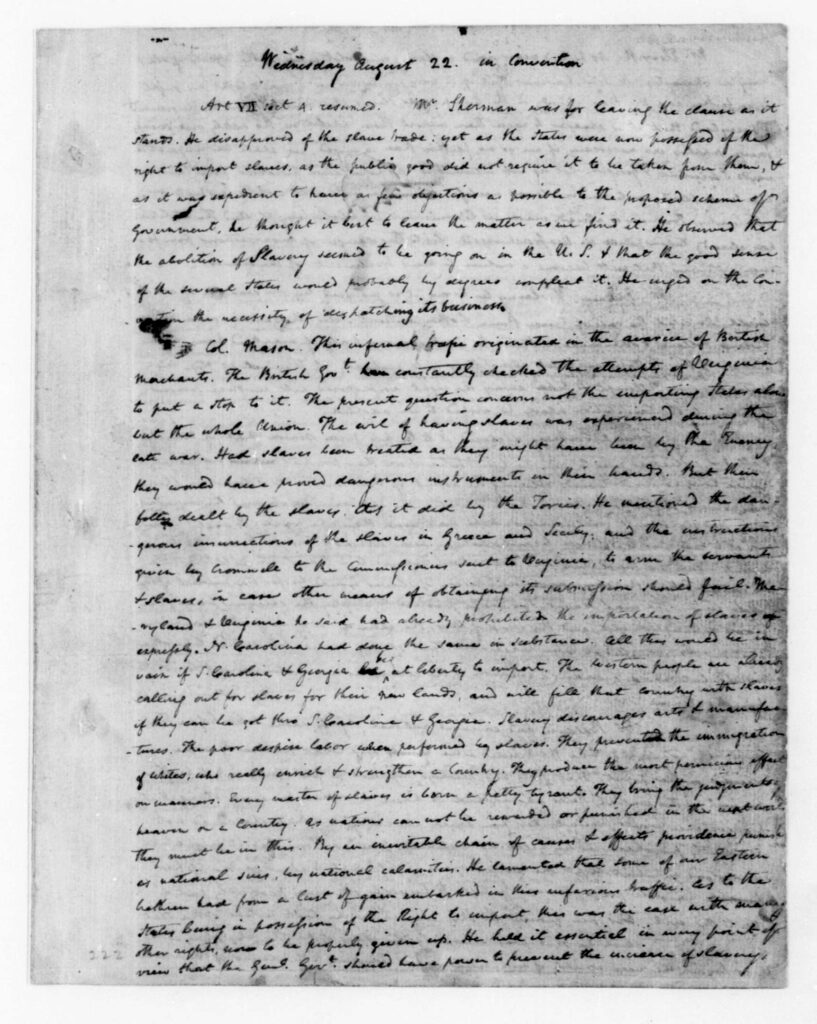 Wednesday August 22. in Convention
Art VII sect 4. resumed. Mr. Sherman was for leaving the clause as it
stands. He disapproved of the slave trade: yet as the States were now possessed of the
right to import slaves, as the public good did not require it to be taken from them, &
as it was expedient to have as few objections as possible to the proposed scheme of
Government, he thought it best to leave the matter as we find it. He observed that
the abolition of Slavery seemed to be going on in the U. S. & that the good sense
of the several States would probably by degrees compleat it. He urged on the Con-
vention the necessity of dispatching its business.
Col. Mason. This infernal trafic originated in the avarice of British
Merchants. The British Govt. constantly checked the attempts of Virginia
to put a stop to it. The present question concerns not the importing States alone
but the whole Union. The evil of having slaves was experienced during the
late war. Had slaves been treated as they might have been by the Enemy,
they would have proved dangerous instruments in their hands. But their
folly dealt by the slaves, as it did by the Tories. He mentioned the dan-
-gerous insurrections of the slaves in Greece and Sicily; and the instructions
given by Cromwell to the Commissioners sent to Virginia, to arm the servants
& slaves, in case other means of obtaining its submission should fail. Ma-
-ryland & Virginia he said had already prohibited the importation of slaves
expressly. N. Carolina had done the same in substance. All this would be in
vain if S. Carolina & Georgia be at liberty to import. The Western people are already
calling out for slaves for their new lands, and will fill that Country with slaves
if they can be got thro' S. Carolina & Georgia. Slavery discourages arts & manufac-
-tures. The poor despise labor when performed by slaves. They prevent the immigration
of whites, who really enrich & strengthen a Country. They produce the most pernicious effect
on manners. Every master of slaves is born a petty tyrant. They bring the judgment of
heaven on a Country. As nations can not be rewarded or punished in the next world
they must be in this. By an inevitable chain of causes & effects providence punish-
es national sins, by national calamities. He lamented that some of our Eastern
brethren had from a lust of gain embarked in this nefarious traffic. As to the
States being in possession of the Right to import, this was the case with many
other rights, now to be properly given up. He held it essential in every point of
view that the Genl. Govt. should have power to prevent the increase of slavery.
222